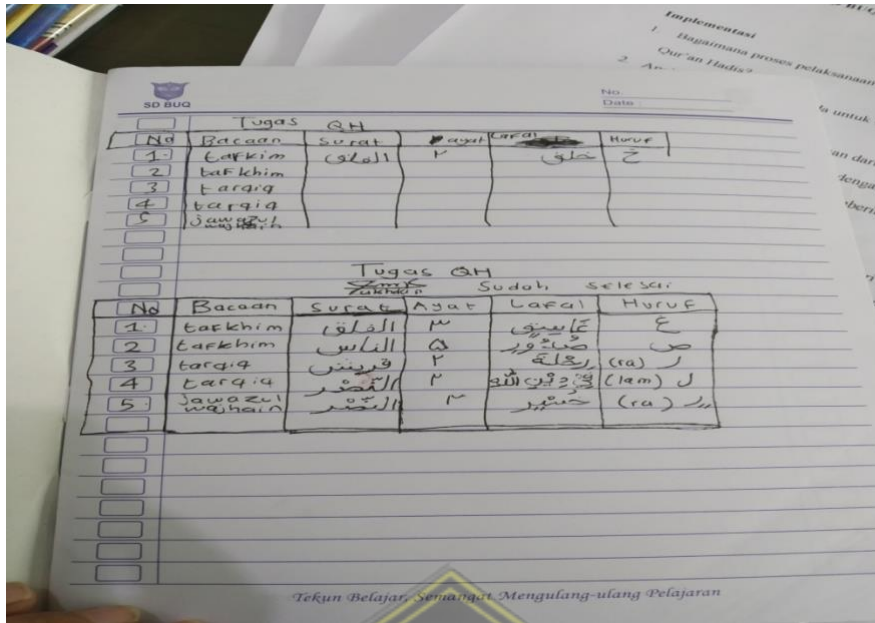 Implementasi
1. Bagaimana proses pelaksanaan
Qur'an Hadis?
2.
SD BUQ
No.
Date
Tugas QH
No Bacaan Surat ayat Lafal Huruf
1. tafkim الفلق ٢ خلق خ
2 tafkhim
3 tarqiq
4 tarqiq
5 jawazul wajhain
Tugas QH
Sudah selesai
No Bacaan Surat Ayat Lafal Huruf
1. tafkhim الفلق ٣ غاسيق غ
2 tafkhim الناس ٥ صُدُور ص
3 tarqiq قريش ٢ رحلة ر (ra)
4 tarqiq النّصْر ٢ ل (lam)
5. Jawazul wajhain النّصْر ٢ ر (ra)
Tekun Belajar, Semangat Mengulang-ulang Pelajaran